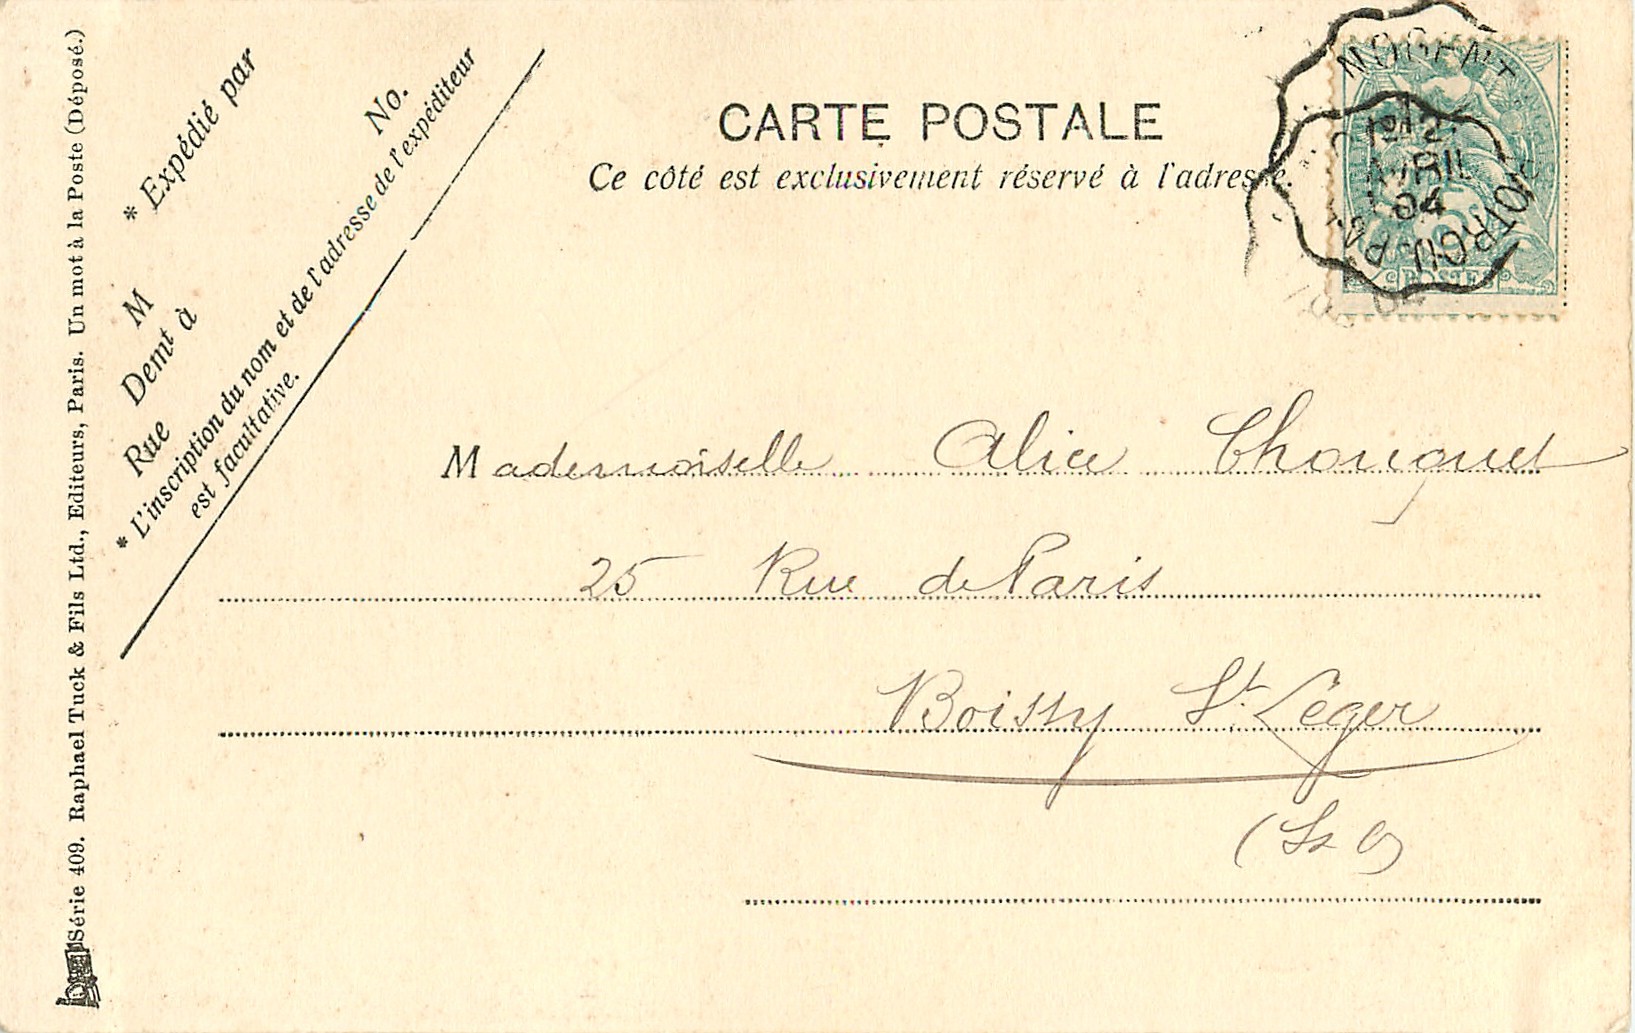 CARTE POSTALE
Ce côté est exclusivement réservé à l'adresse.
* Expédié par
M
No.
Demt à
Rue
* L'inscription du nom et de l'adresse de l'expéditeur
est facultative.
Série 409. Raphael Tuck & Fils Ltd., Editeurs, Paris. Un mot à la Poste (Déposé.)
12
AVRIL
04
POSTES
Mademoiselle Alice Chouquet
25 Rue de Paris
Boissy St. Léger